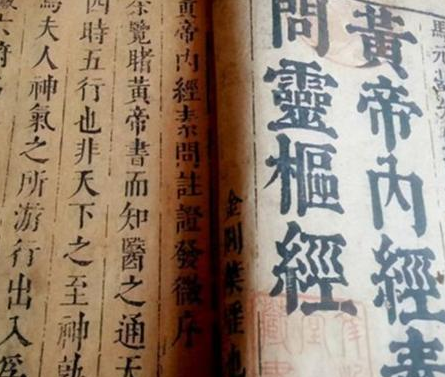 黃帝內經素
問靈樞經
黃帝內經素問註證發微序
余覽睹黃帝書而知醫之通天
四時五行也非天下之至神孰
爲夫人神氣之所游行出入